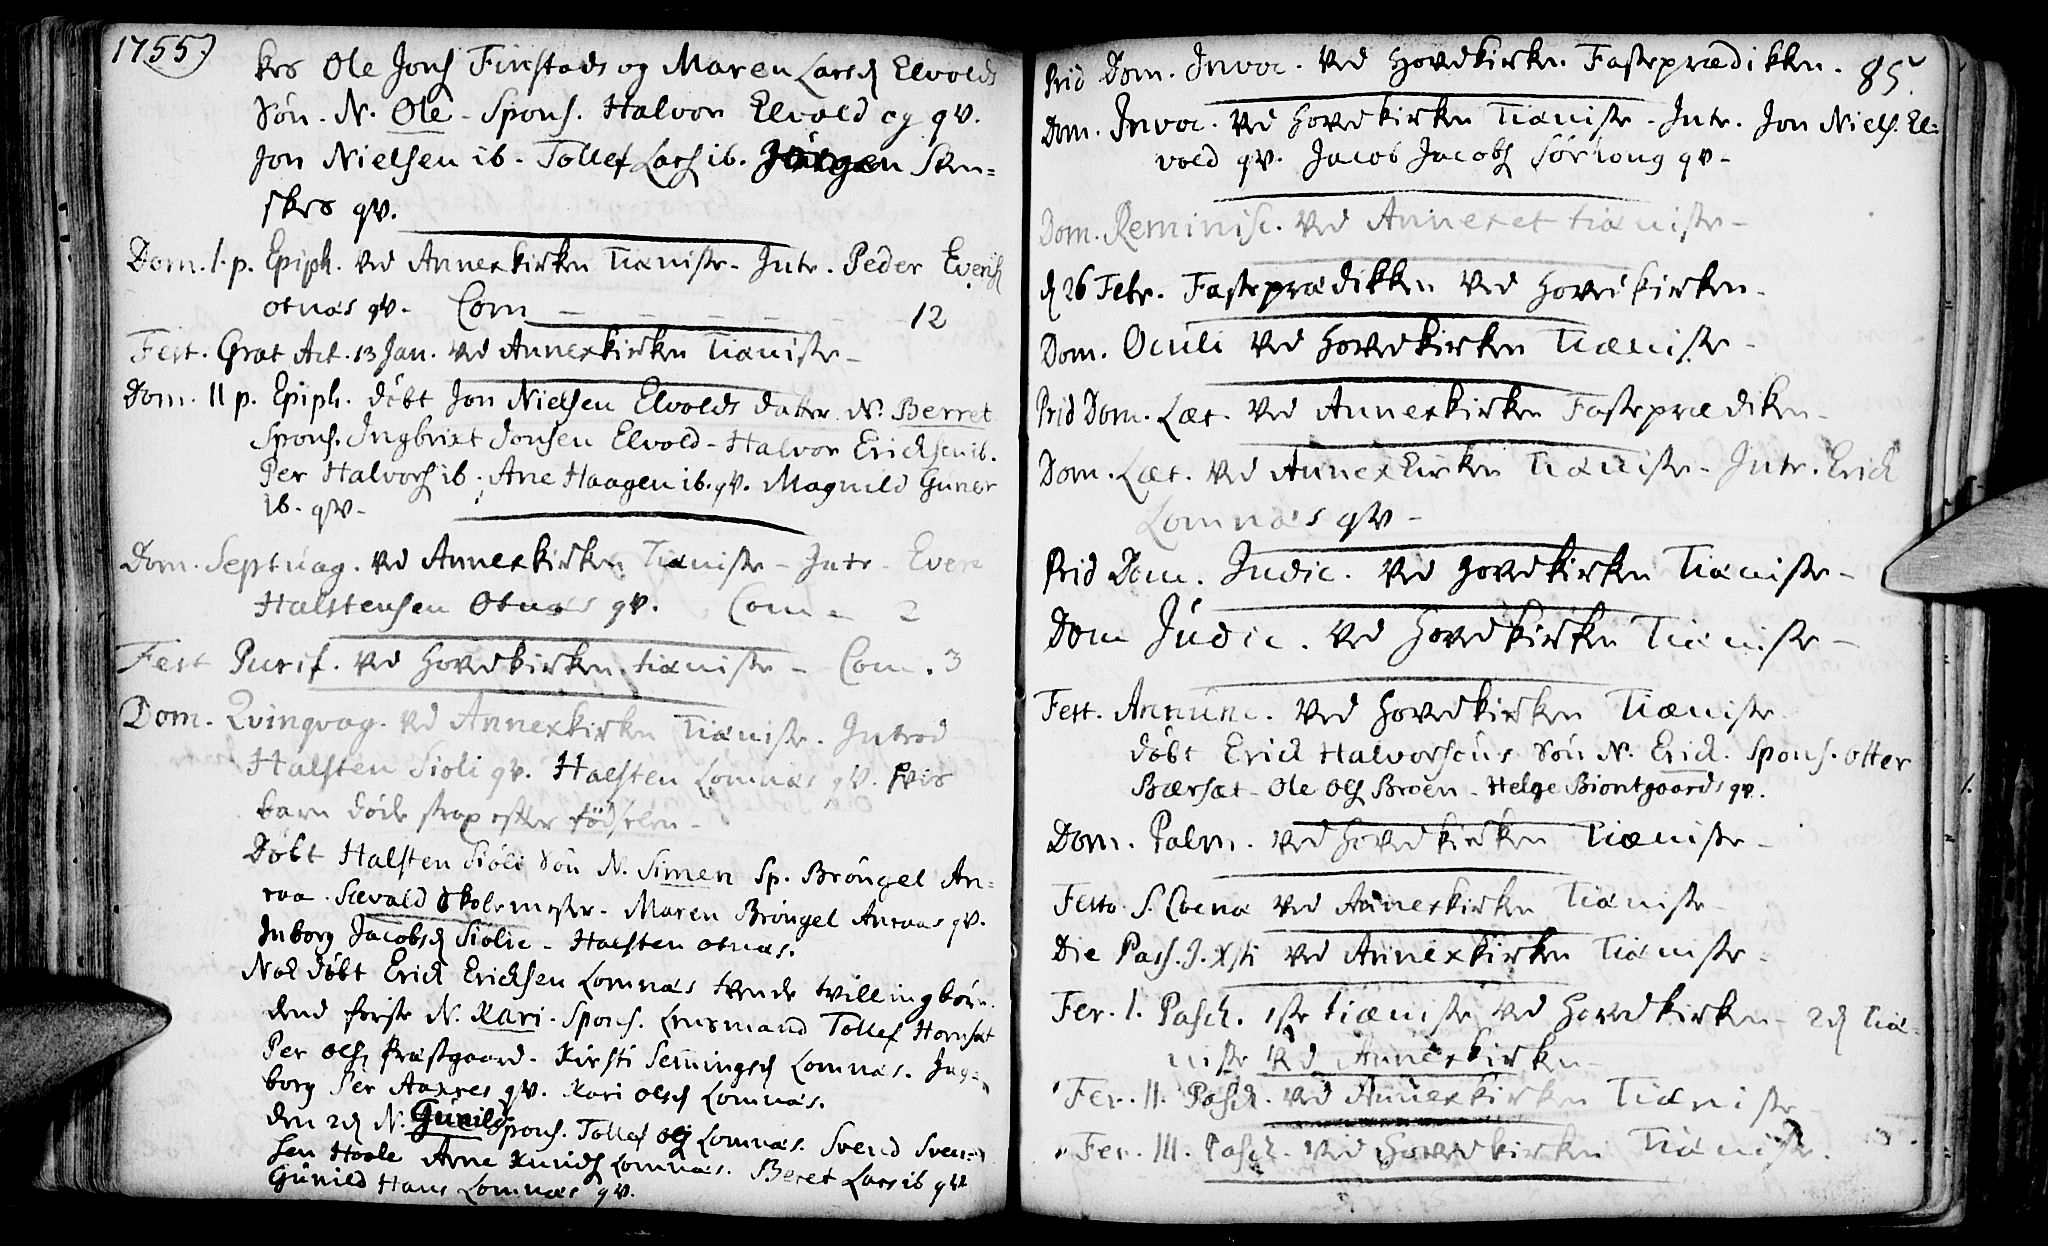 1755.
kes Ole Jons Finstads og Maren Larsd Elvolds
Søn. N. Ole - Spons. Halvor Elvold og qv.
Jon Nielsen ib. Tollef Lars ib. Jörgen Sten=
skes qv.
Dom. 1. p. Epiph. ved Annexkirken tiæniste - Intr. Peder Evens
otnæs qv. Com - - - - 12
Fest. Grat Act. 13 Jan. ved Annexkirken Tiæniste -
Dom. II p. Epiph. döbt Jon Nielsen Elvolds datter N. Berret
Spons. Ingbrixt Jonsen Elvold - Halvor Ericksen ib.
Per Halvors ib. Ane Haagen ib. qv. Magnild Guner
ib. qv -
Dom. Septuag. ved Annexkirken Tiæniste - Intr - Even
Halstensen Otnæs qv. Com - 2
Fest Purif. ved Hovedkirken tiæniste - Com. 3
Dom. Qvinqvag. ved Annexkirken Tiæniste. Introd
Halsten Siöli qv. Halsten Lomnæs qv. hvis
barn döde strax efter födselen -
Döbt Halsten Siöli Sön N. Simen Sp. Bröngel An=
raa. Sievald Skolemester - Maren Bröngel Anraas qv.
Inborg Jacobsd Siölie - Halsten otnæs.
Nok döbt Erick Ericksen Lomnæs tvende tvillingbörn.
dend förste N. Kari - Spons. Lensmand Tollef Hornset
Per Ols Præstgaard - Kirsti Semmingsd Lomnæs. Ing=
borg Per Aaxres qv. Kari Olsd Lomnæs.
den 2d N. Gunild Spons. Tollef Ols Lomnæs. Svend Sven=
sen Hoole Arne Knuds Lomnæs. Beret Lars ib qv
Gunild Hans Lomnæs qv.
85.
Prid Dom. Invoc. ved Hovedkirken Fasteprædikken.
Dom. Invoc. ved Hovedkirken Tiæniste - Intr. Jon Niels. El=
vold qv. Jacob Jacobs Sörhong qv -
Dom. Reminisc. ved Annexet tiæniste -
d 26 Febr. Fasteprædikken ved Hovedkirken -
Dom. Oculi ved Hovedkirken Tiæniste -
Prid Dom. Læt. ved Annexkirken Fasteprædiken -
Dom. Læt. ved Annexkirken Tiæniste - Intr. Erick
Lomnæs qv -
Prid Dom. Judic. ved Hovedkirken Tiæniste -
Dom Judic. ved Hovedkirken Tiæniste -
Fest. Annunc. ved Hovedkirken Tiæniste
döbt Erick Halvorsens Sön N. Erick. Spons. Otter
Bærsæt - Ole Ols Broen - Helge Biontgaards qv.
Dom. Palm. ved Hovedkirken Tiæniste -
Festo S. Coena ved Annexkirken Tiæniste
Die Pass. J. Xsti ved Annexkirken Tiæniste -
Fer. I. Pasch. 1ste tiæniste ved Hovedkirken - 2d Tiæ-
niste ved Annexkirken -
Fer. II. Pasch. ved Annexkirken Tiæniste -
Fer. III. Pasch. ved Hovedkirken Tiæniste.